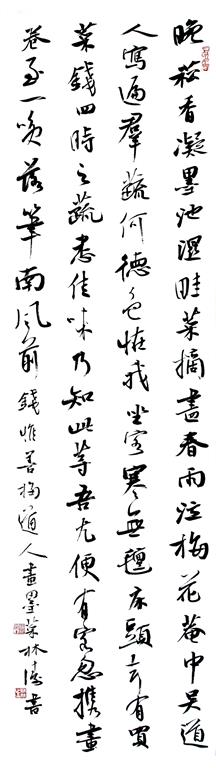 晚菘香凝墨池濕畦菜摘盡春雨泣梅花菴中吳道
人寫遍羣蔬何德色怪我坐客寒無氊床頭却有買
菜錢四時之蔬悉佳味乃知此等吾尤便有客忽攜畫
卷至一咲落筆南風前 錢惟善梅道人畫墨菜林濤書